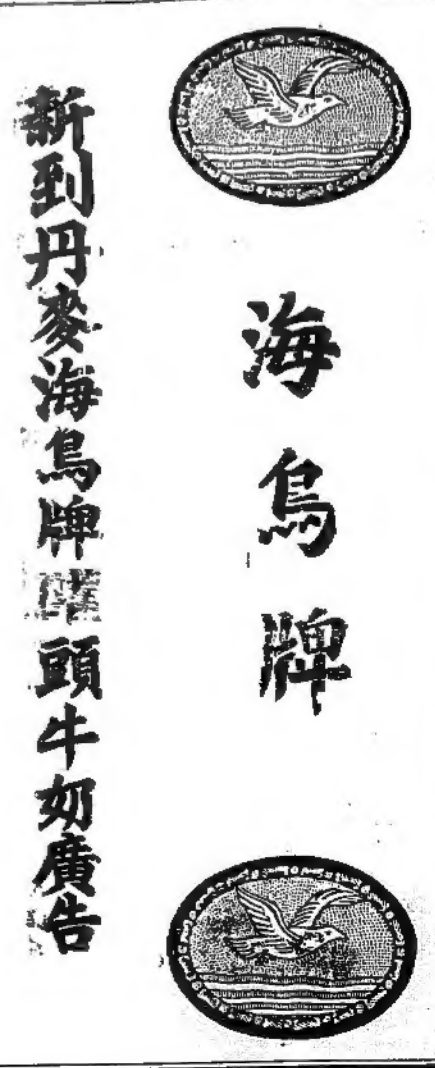 海鳥牌
新到丹麥海鳥牌罐頭牛奶廣告